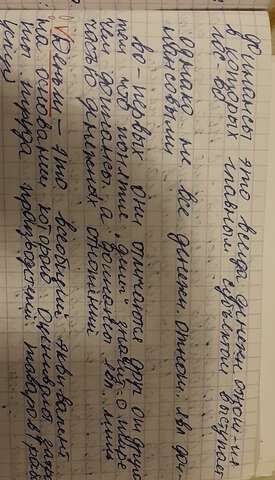 Финансы это всегда денежн отнош-ия
в которых главным субъектом выступает
гос-во
Однако не все денежн. отнош. явл фи-
нансовыми
во-первых они отличаются друг от друга
тем что понятие "деньги" шире
чем финансы, а финансы явл. лишь
частью денежных отношений
Деньги – это всеобщий эквивалент
на основании которого оценивают затра-
ты труда производителей товаров раб
услуг